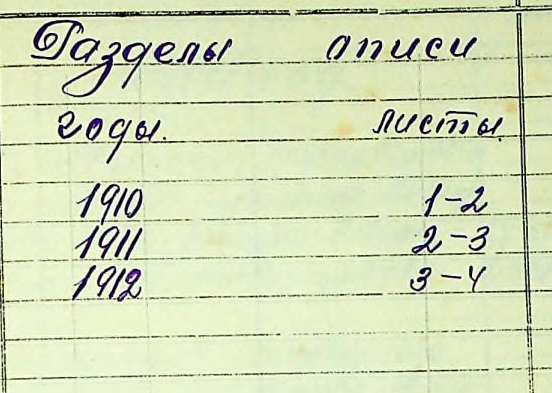 Разделы описи
годы. листы.
1910 1-2
1911 2-3
1912 3-4